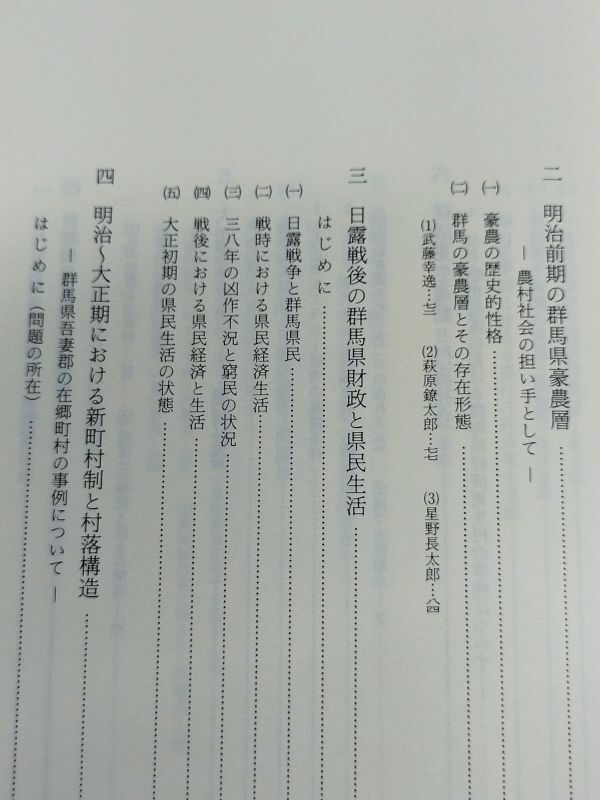 二　明治前期の群馬県豪農層……
― 農村社会の担い手として ―
㈠　豪農の歴史的性格……
㈡　群馬の豪農層とその存在形態……
(1)武藤幸逸…七三　(2)萩原鐐太郎…七七　(3)星野長太郎…八四
三　日露戦後の群馬県財政と県民生活……
はじめに……
㈠　日露戦争と群馬県民……
㈡　戦時における県民経済生活……
㈢　三八年の凶作不況と窮民の状況……
㈣　戦後における県民経済と生活……
㈤　大正初期の県民生活の状態……
四　明治～大正期における新町村制と村落構造……
― 群馬県吾妻郡の在郷町村の事例について ―
はじめに（問題の所在）……